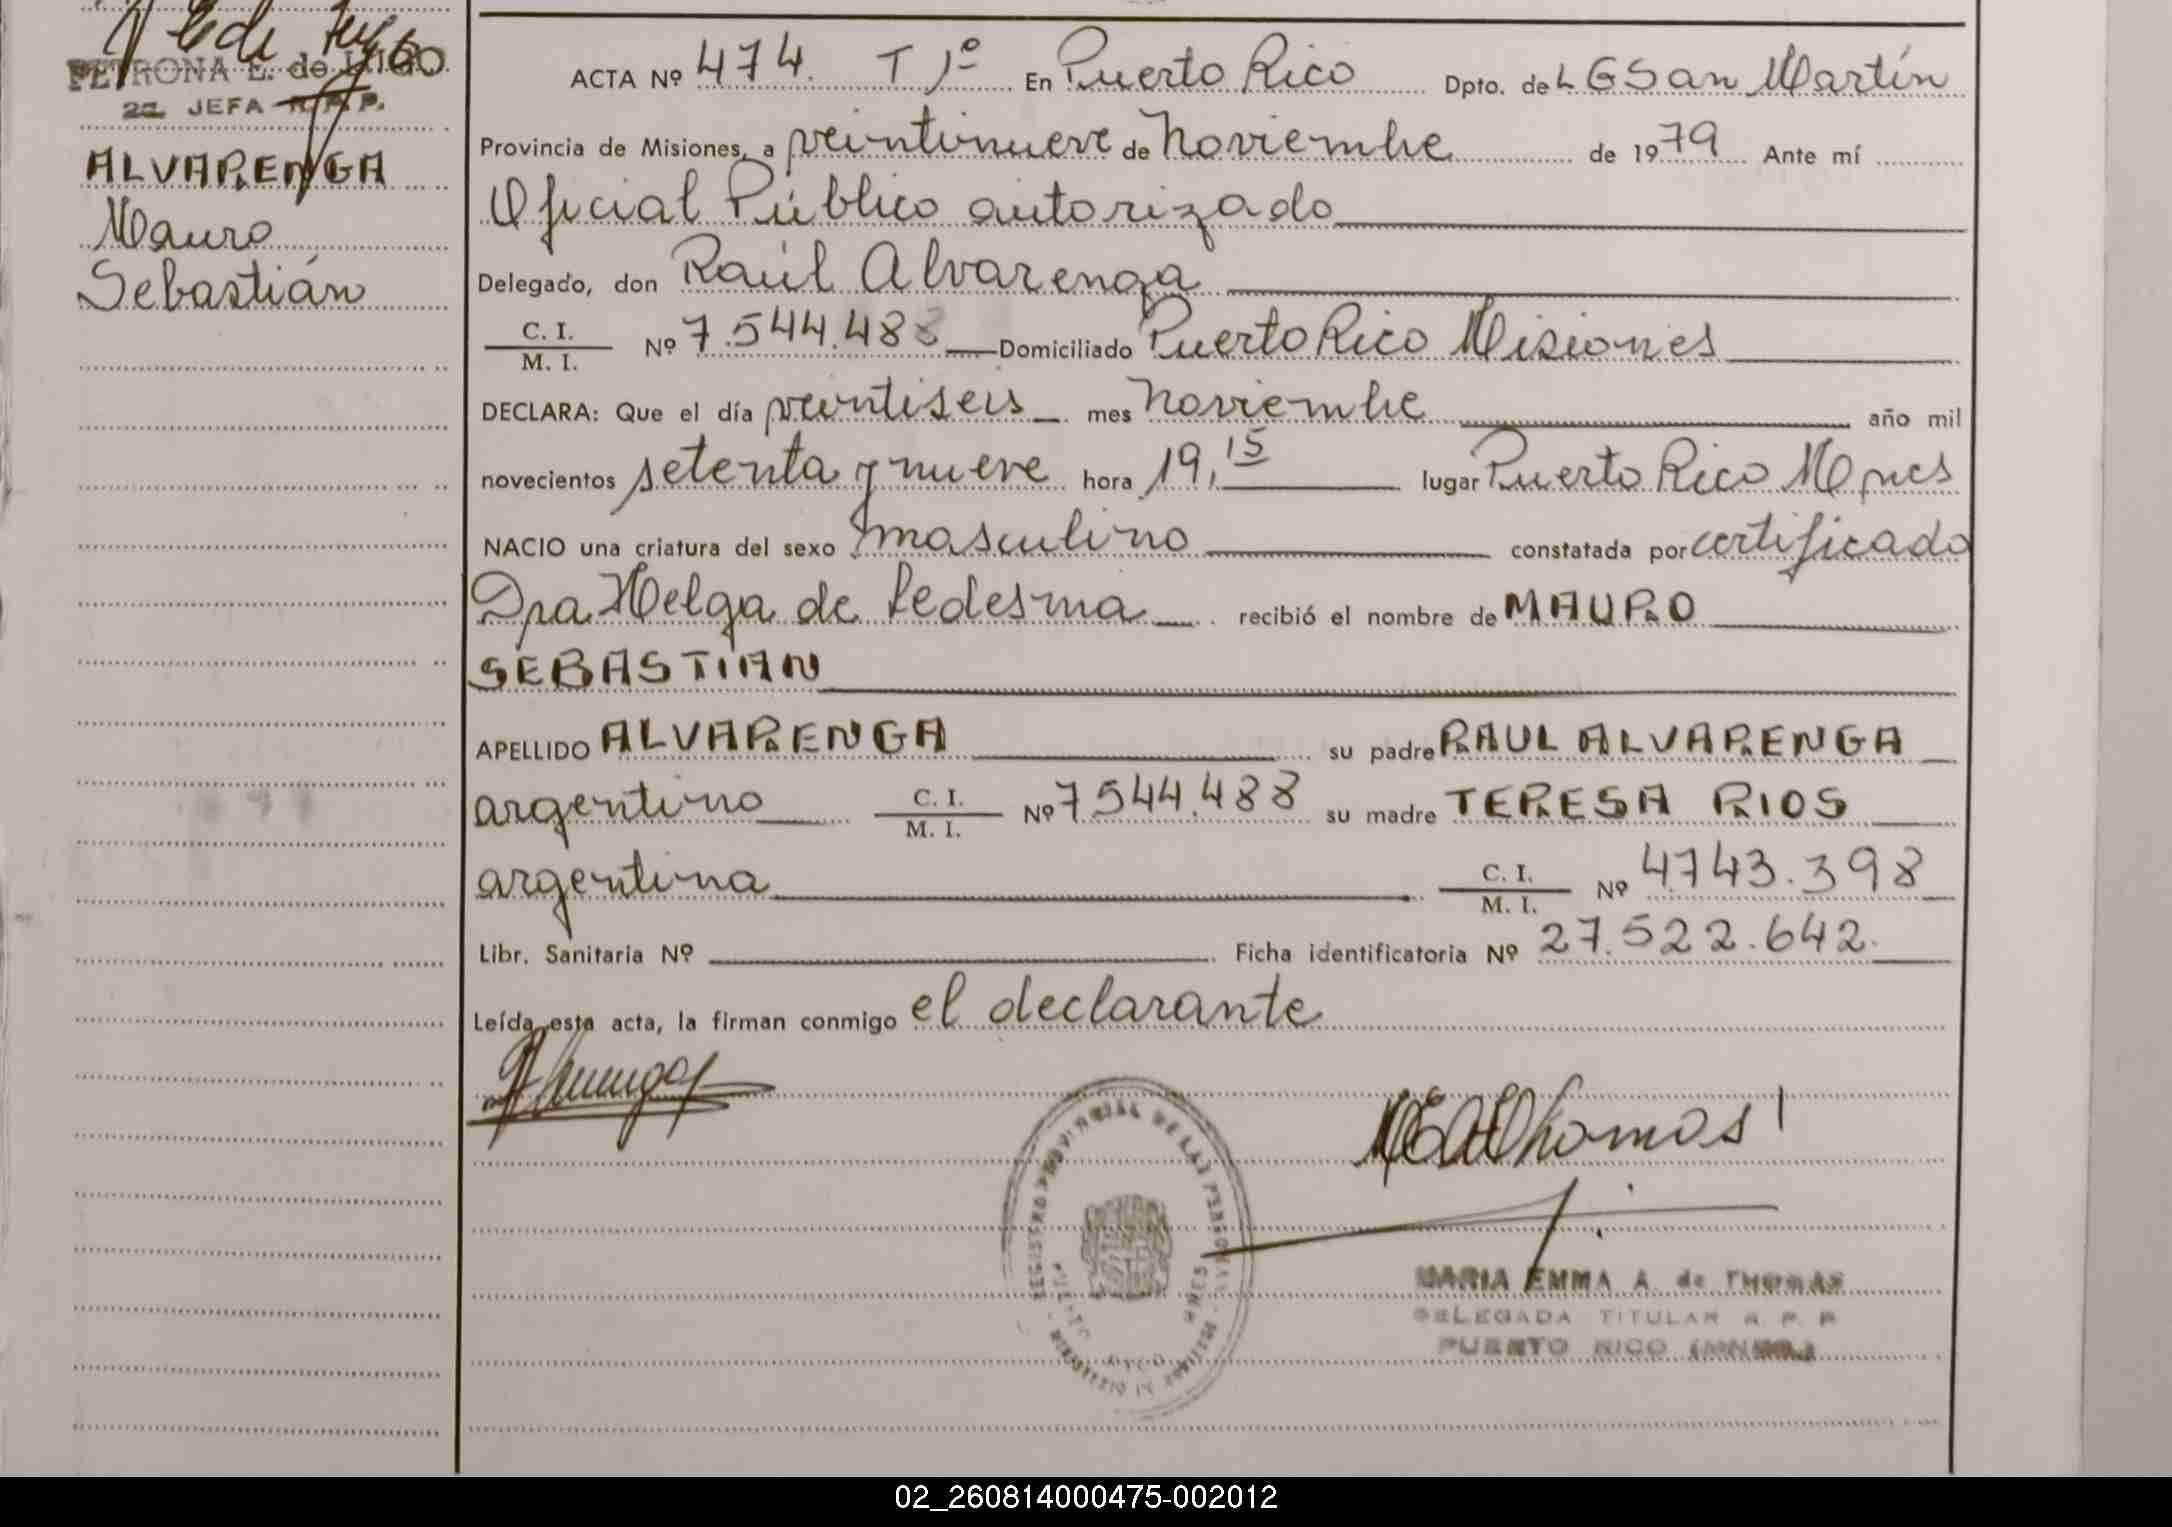 PETRONA E. de LUGO
2a JEFA R. P. P.
ALVARENGA
Mauro
Sebastián
ACTA Nº 474. T 1º En Puerto Rico Dpto. de L G San Martín
Provincia de Misiones, a veintinueve de Noviembre de 1979 Ante mí
Oficial Público autorizado
Delegado, don Raúl Alvarenga
C. I.
M. I. Nº 7.544.488 Domiciliado Puerto Rico Misiones
DECLARA: Que el día veintiseis mes Noviembre año mil
novecientos setenta y nueve hora 19,15 lugar Puerto Rico Mnes
NACIO una criatura del sexo masculino constatada por certificado
Dra Helga de Ledesma recibió el nombre de MAURO
SEBASTIAN
APELLIDO ALVARENGA su padre RAUL ALVARENGA
argentino C. I.
M. I. Nº 7.544.488 su madre TERESA RIOS
argentina C. I.
M. I. Nº 4.743.398
Libr. Sanitaria Nº Ficha identificatoria Nº 27.522.642.
Leída esta acta, la firman conmigo el declarante
REGISTRO PROVINCIAL DE LAS PERSONAS
PUERTO RICO
MNES
MARIA EMMA A. de THOMAS
DELEGADA TITULAR R. P. P.
PUERTO RICO (MNES.)
02_260814000475-002012